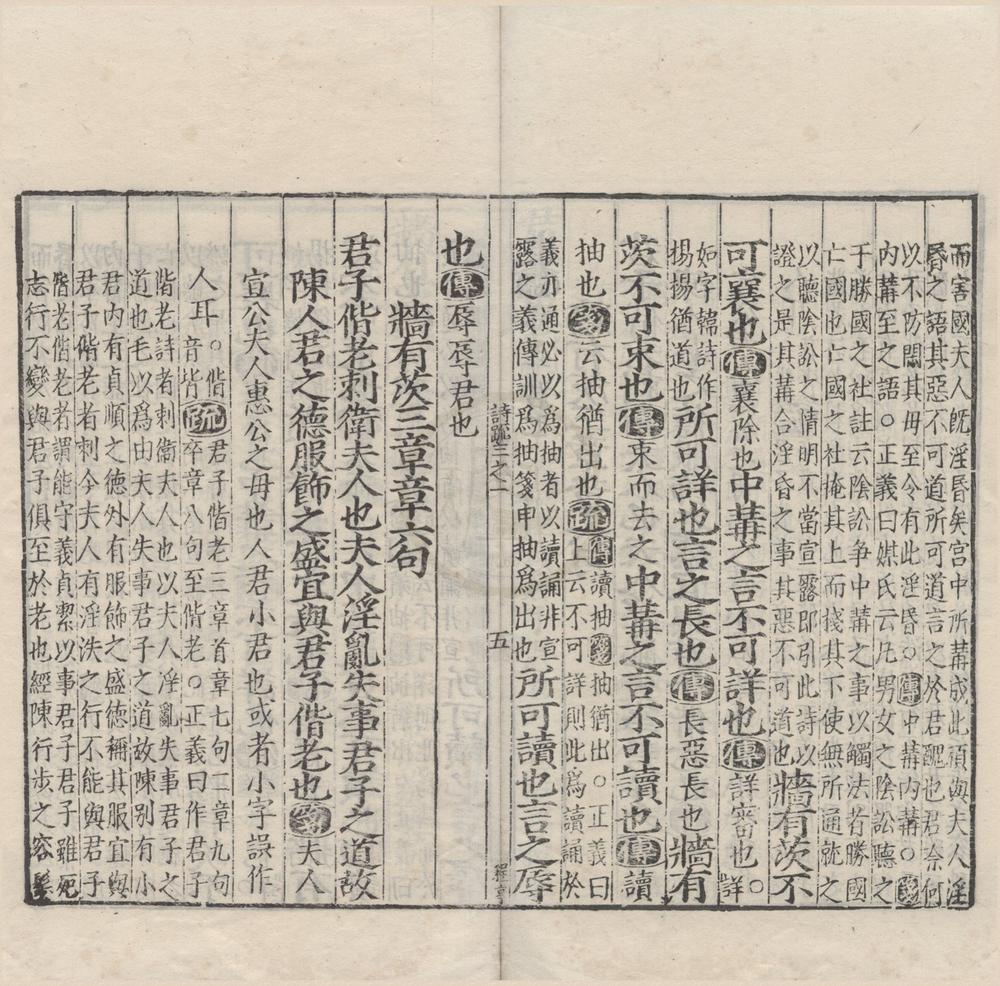 而害國夫人旣淫昬矣宫中所冓成此頑與夫人淫
昬之語其惡不可道所可道言之於君醜也君奈何
以不防閑其毋至令有此淫昬○傳中冓内冓○箋
内冓至之語○正義曰媒氏云凡男女之陰訟聽之
于勝國之社註云陰訟争中冓之事以觸法者勝國
亡國也亡國之社掩其上而棧其下使無所通就之
以聽陰訟之情明不當宣露即引此詩以
證之是其冓合淫昏之事其惡不可道也牆有茨不
可襄也傳襄除也中冓之言不可詳也傳詳審也○詳
如字韓詩作
揚揚猶道也所可詳也言之長也傳長惡長也牆有
茨不可束也傳束而去之中冓之言不可讀也傳讀
抽也箋云抽猶出也疏傳讀抽箋抽猶出○正義曰
上云不可詳則此爲讀誦於
義亦通必以爲抽者以讀誦非宣
露之義傳訓爲抽箋申抽爲出也所可讀也言之辱
詩疏三之一
五
也傳辱辱君也
牆有茨三章章六句
君子偕老刺衛夫人也夫人淫亂失事君子之道故
陳人君之德服飾之盛宜與君子偕老也箋夫人
宣公夫人惠公之母也人君小君也或者小字誤作
人耳○偕
音皆疏君子偕老三章首章七句二章九句
卒章八句至偕老○正義曰作君子
偕老詩者刺衛夫人也以夫人淫亂失事君子之
道也毛以爲由夫人失事君子之道故陳别有小
君内有貞順之德外有服飾之盛德稱其服宜與
君子偕老者刺今夫人有淫泆之行不能與君子
偕老偕老者謂能守義貞絜以事君子君子雖死
志行不變與君子俱至於老也經陳行步之容髮